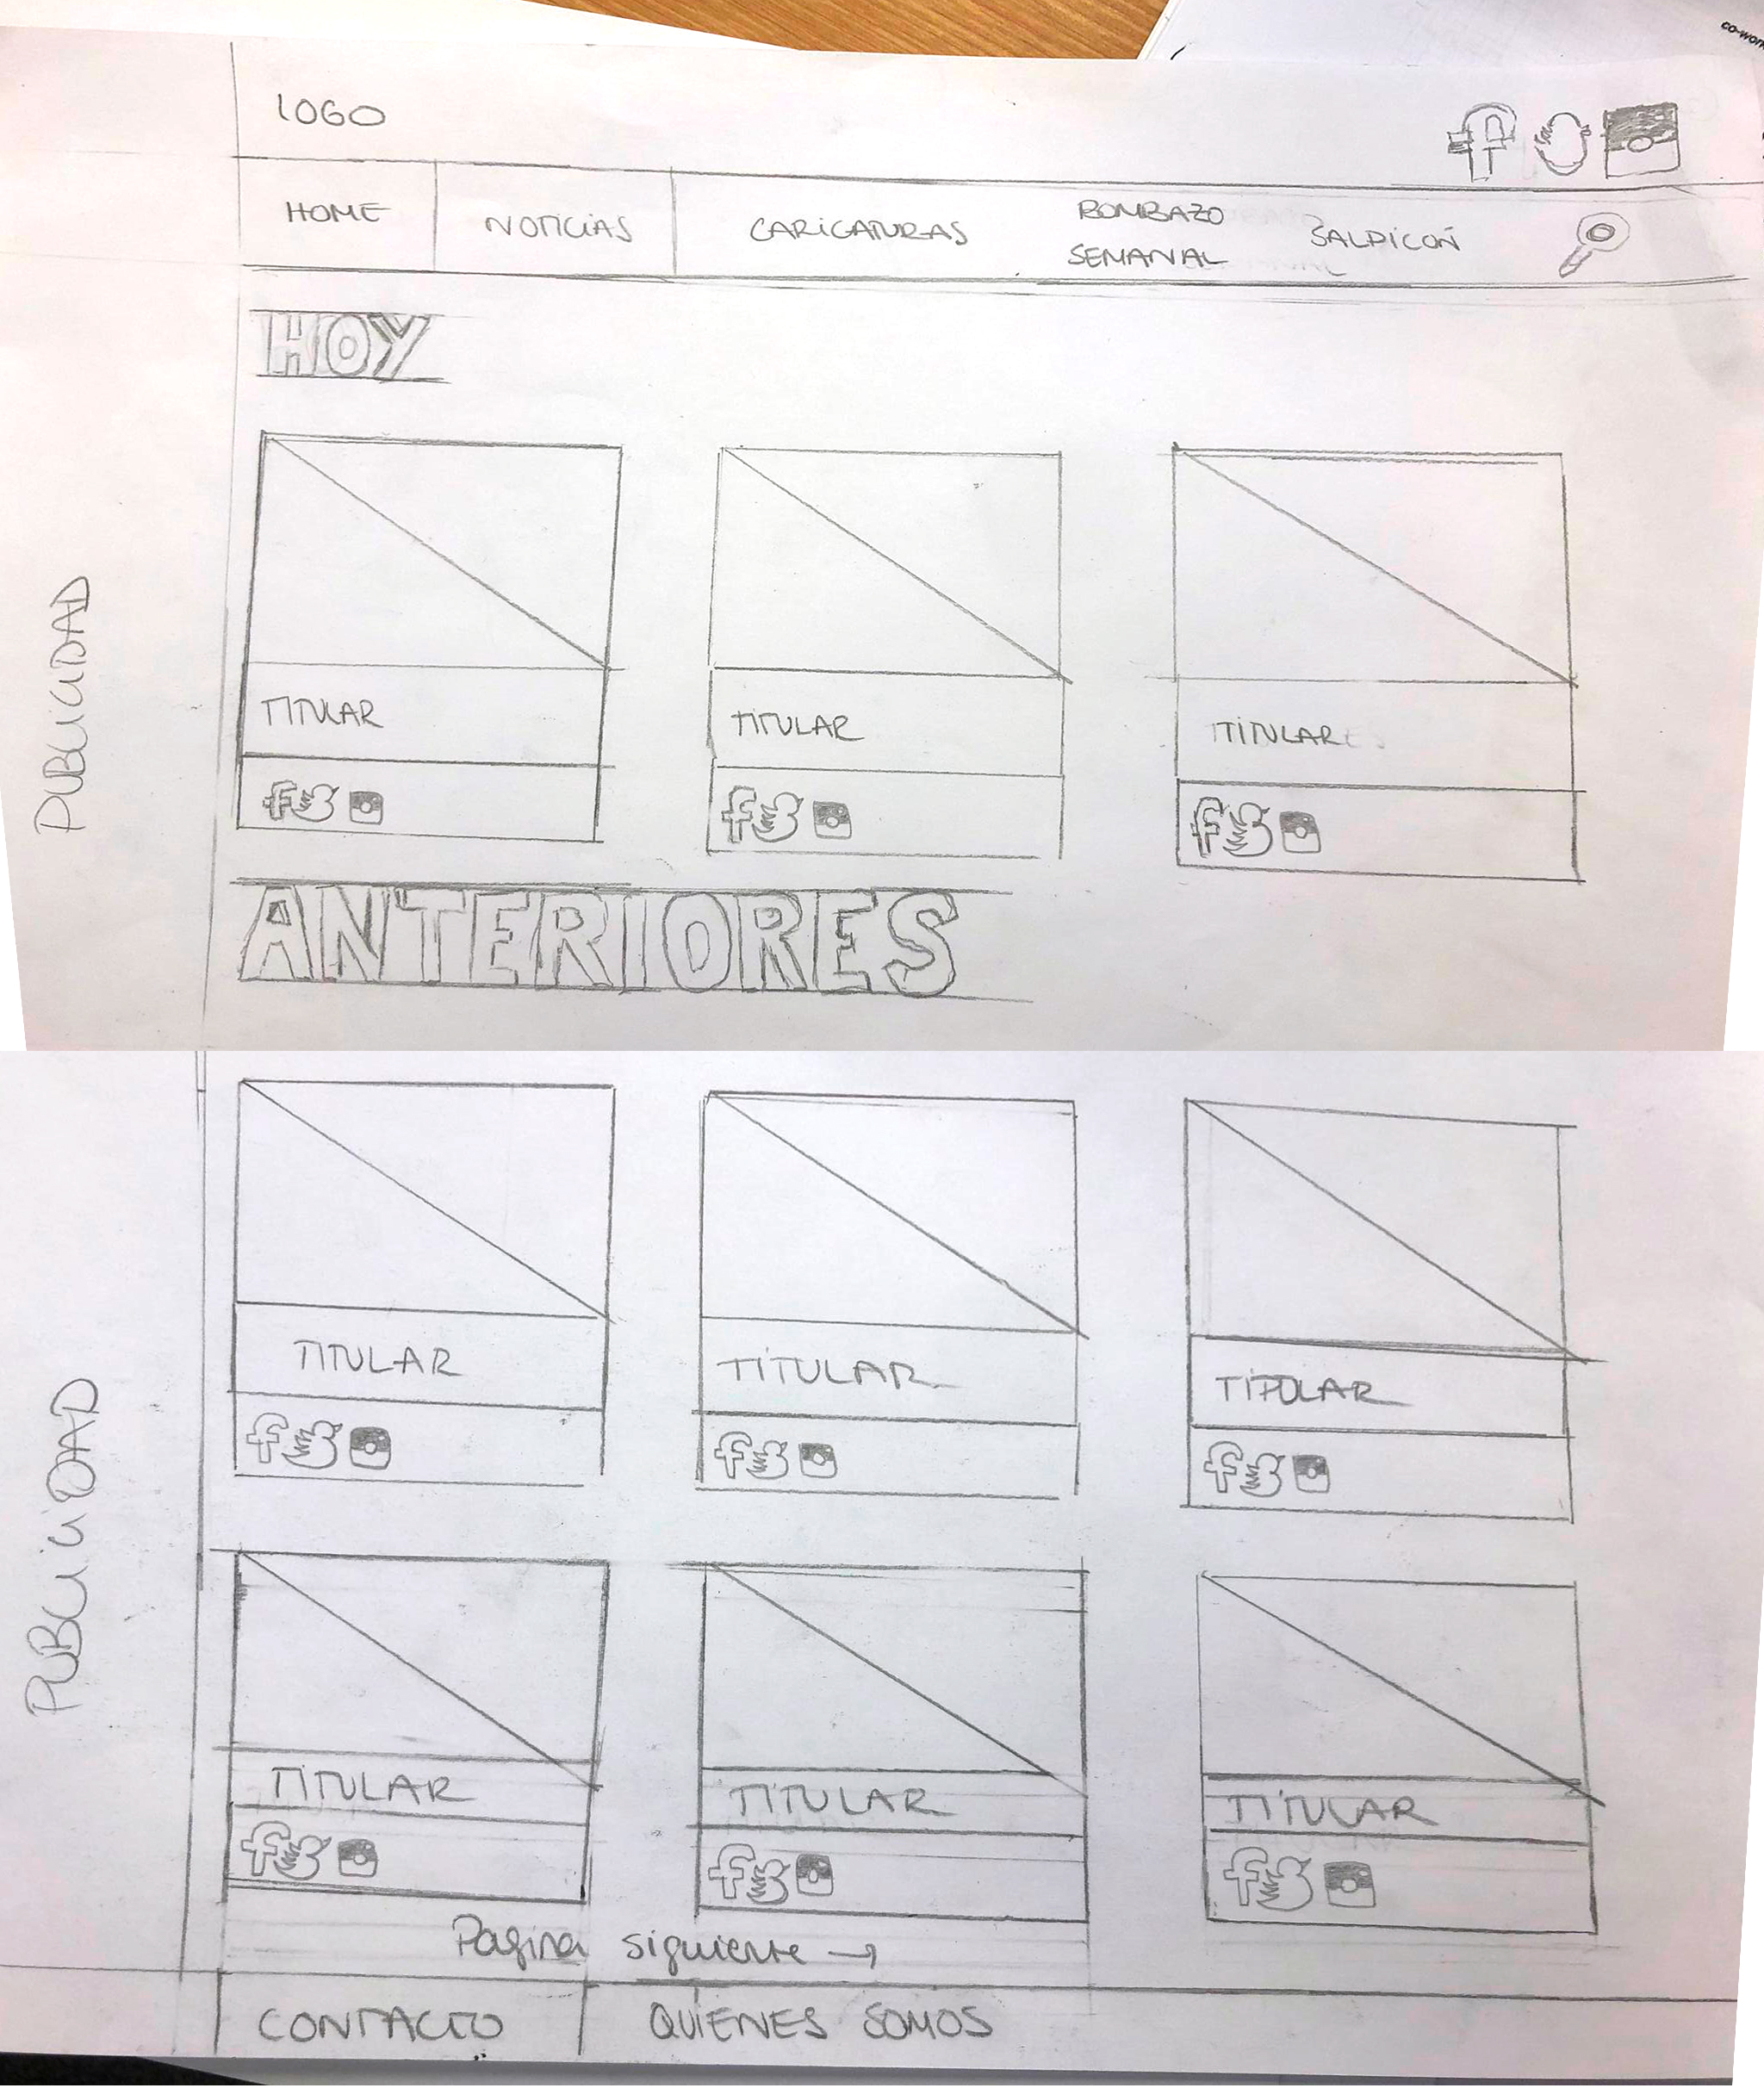 co-wor
LOGO
HOME NOTICIAS CARICATURAS BOMBAZO SEMANAL SALPICON
HOY
PUBLICIDAD
TITULAR TITULAR TITULAR
ANTERIORES
PUBLICIDAD
TITULAR TITULAR TITULAR
TITULAR TITULAR TITULAR
Pagina siguiente →
CONTACTO QUIENES SOMOS